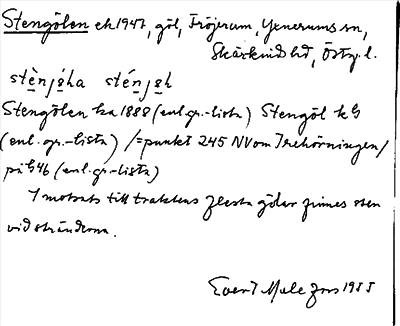 Stengölen ek 1947, göl, Fröjerum, Yxnerums sn,
Skärkinds hd, Östg. l.
stènjǿka sténjøk
Stengölen ka 1888 (enl. gr.-lista) Stengöl kG
(enl. gr.-lista) /= punkt 245 NV om Trehörningen/
på G46 (enl. gr.-lista)
I motsats till traktens flesta gölar finnes sten
vid stränderna.
Evert 1955